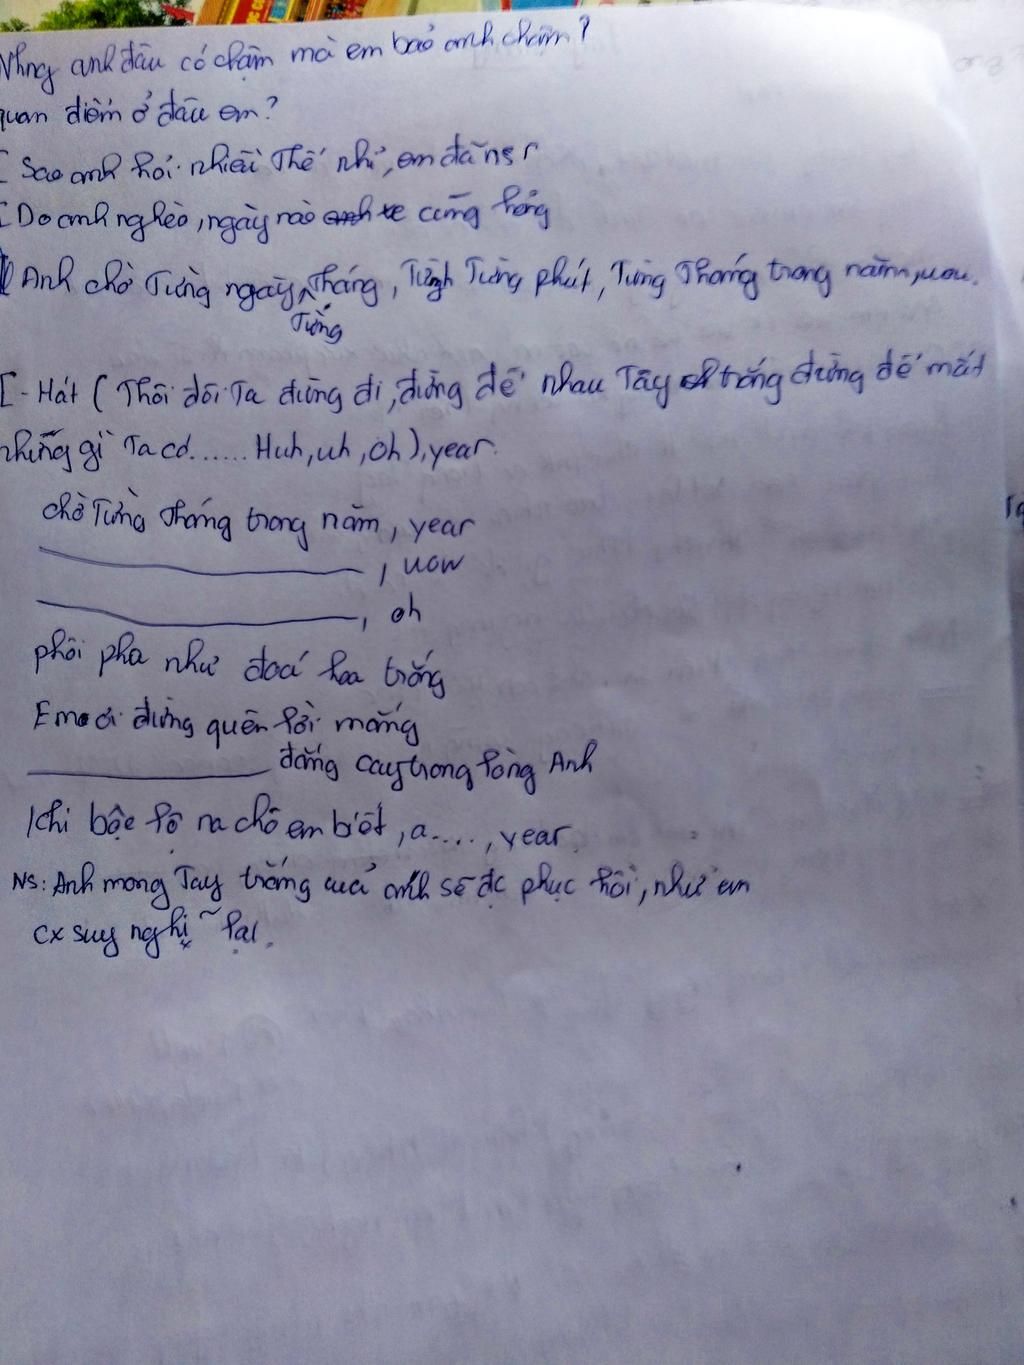 Nhng anh đâu có chậm mà em bảo anh chậm?
quan điểm ở đâu em?
[ Sao anh hỏi nhiều Thế nhỉ, em đã ns r
[ Do anh nghèo, ngày nào cũng hỏng
Anh chờ Từng ngày, Từng Tháng, Từng phút, Từng Tháng trong năm, uou.
[- Hát ( Thôi đôi Ta đừng đi, đừng để nhau Tây trắng đừng để mất
những gì Ta có...... Huh, uh, oh), year.
chờ Từng Tháng trong năm, year
, uow
, oh
phôi pha như đoá hoa trắng
Em ơi đừng quên lời mắng
đắng cay trong lòng Anh
Khi bộc lộ ra chô em biết, a...., year.
NS: Anh mong Tay trắng cuả anh sẽ đc phục hồi, như em
cx suy nghĩ lại.